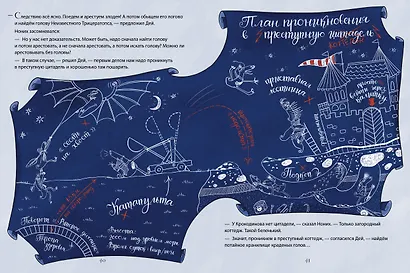 — Следствию всё ясно. Поедем и арестуем злодея! А потом обыщем его логово
и найдём голову Неизвестного Трицератопса, — предложил Дей.
Ноник засомневался:
— Но у нас нет доказательств. Может быть, надо сначала найти голову
и потом арестовать, а не сначала арестовать, а потом искать голову? Можно ли
арестовывать без головы?
— В таком случае, — решил Дей, — первым делом нам надо проникнуть
в преступную цитадель и хорошенько там пошарить.
План проникновения
в преступную цитадель
коттедж
приставная
лестница
просто
войти через
калитку
свали
на хвост
Катапульта
Подкоп
Поворот
Тропа
Высота:
— У Крокодилова нет цитадели, — сказал Ноник. — Только загородный
коттедж. Такой беленький.
— Значит, проникнем в преступный коттедж, — согласился Дей, — найдём
потайное хранилище краденых голов...